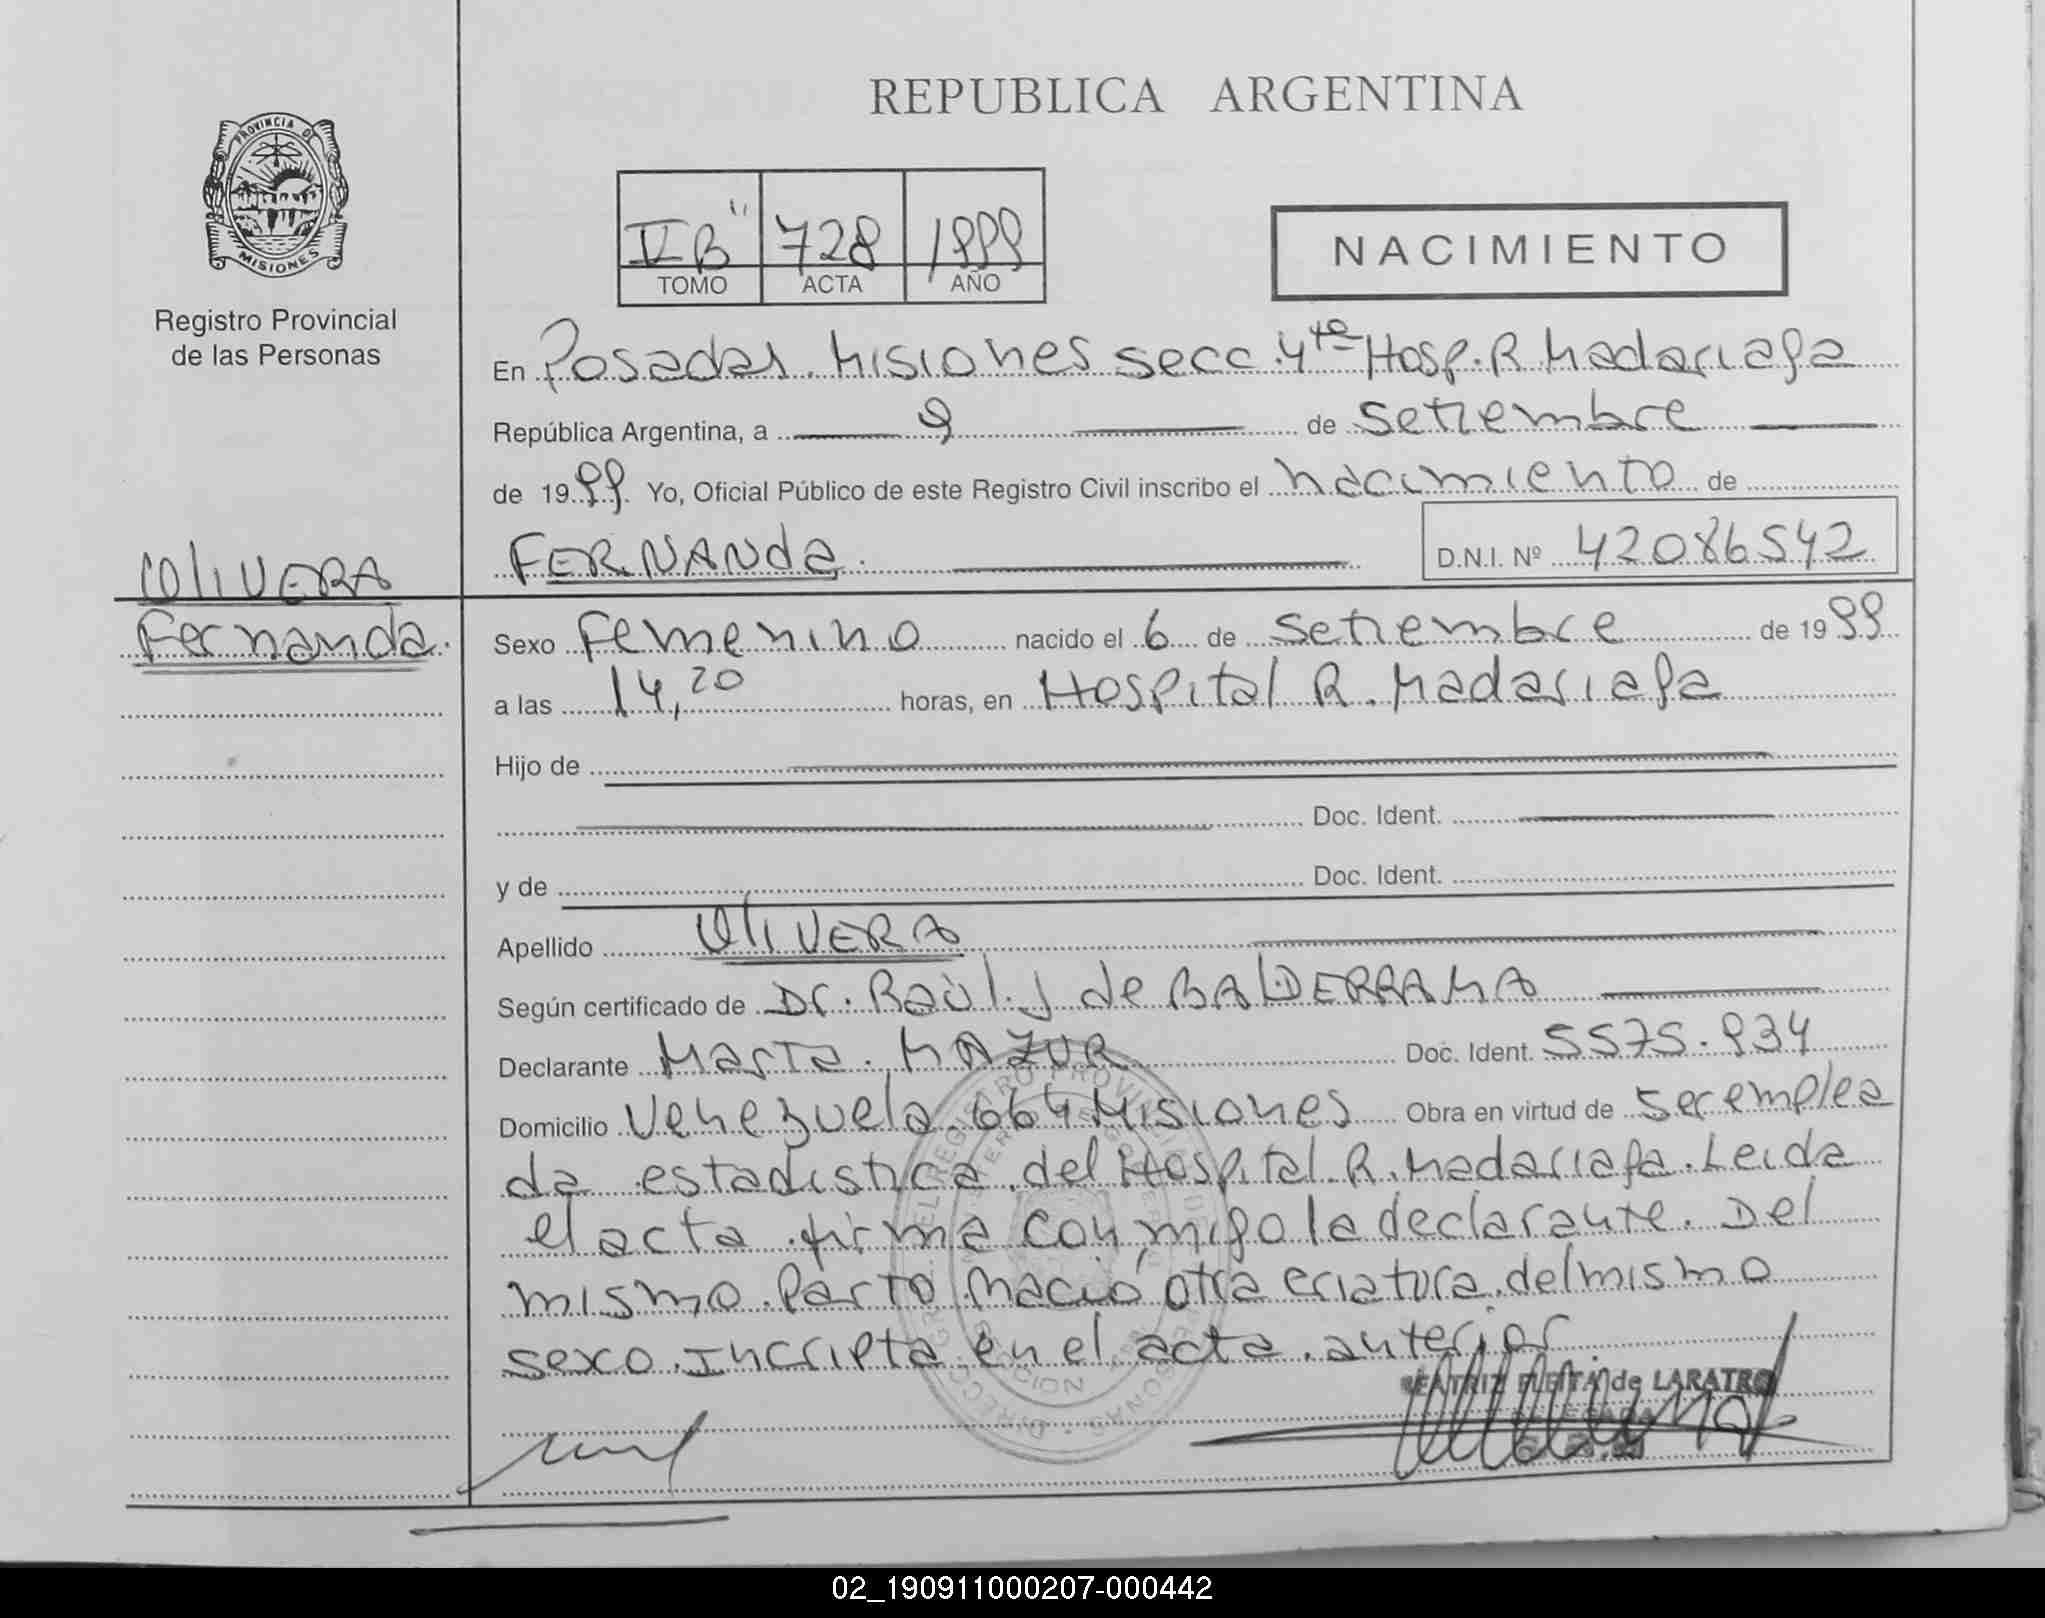 REPUBLICA ARGENTINA
PROVINCIA DE
MISIONES
Registro Provincial
de las Personas
V B" 728 1999
TOMO ACTA AÑO
NACIMIENTO
En Posadas. Misiones secc. 4ta Hosp. R Madariaga
República Argentina, a 9 de setiembre
de 1999 Yo, Oficial Público de este Registro Civil inscribo el nacimiento de
FERNANda. D.N.I. Nº 42086542
OliVERA
Fernanda.
Sexo Femenino nacido el 6 de setiembre de 1999
a las 14,20 horas, en Hospital R. Madariaga
Hijo de
Doc. Ident.
y de Doc. Ident.
Apellido OliVERA
Según certificado de Dr. Raúl. J de BALDERRAMA
Declarante Marta. MAZUR Doc. Ident. 5575.934
Domicilio Venezuela. 664 Misiones Obra en virtud de ser emplea
da estadistica. del Hospital. R. Madariaga. Leida
el acta. firma conmigo la declarante. Del
mismo. Parto Nació otra criatura. del mismo
sexo. Incripta en el acta. anterior.
BEATRIZ FLEITA de LARATRO
02_190911000207-000442